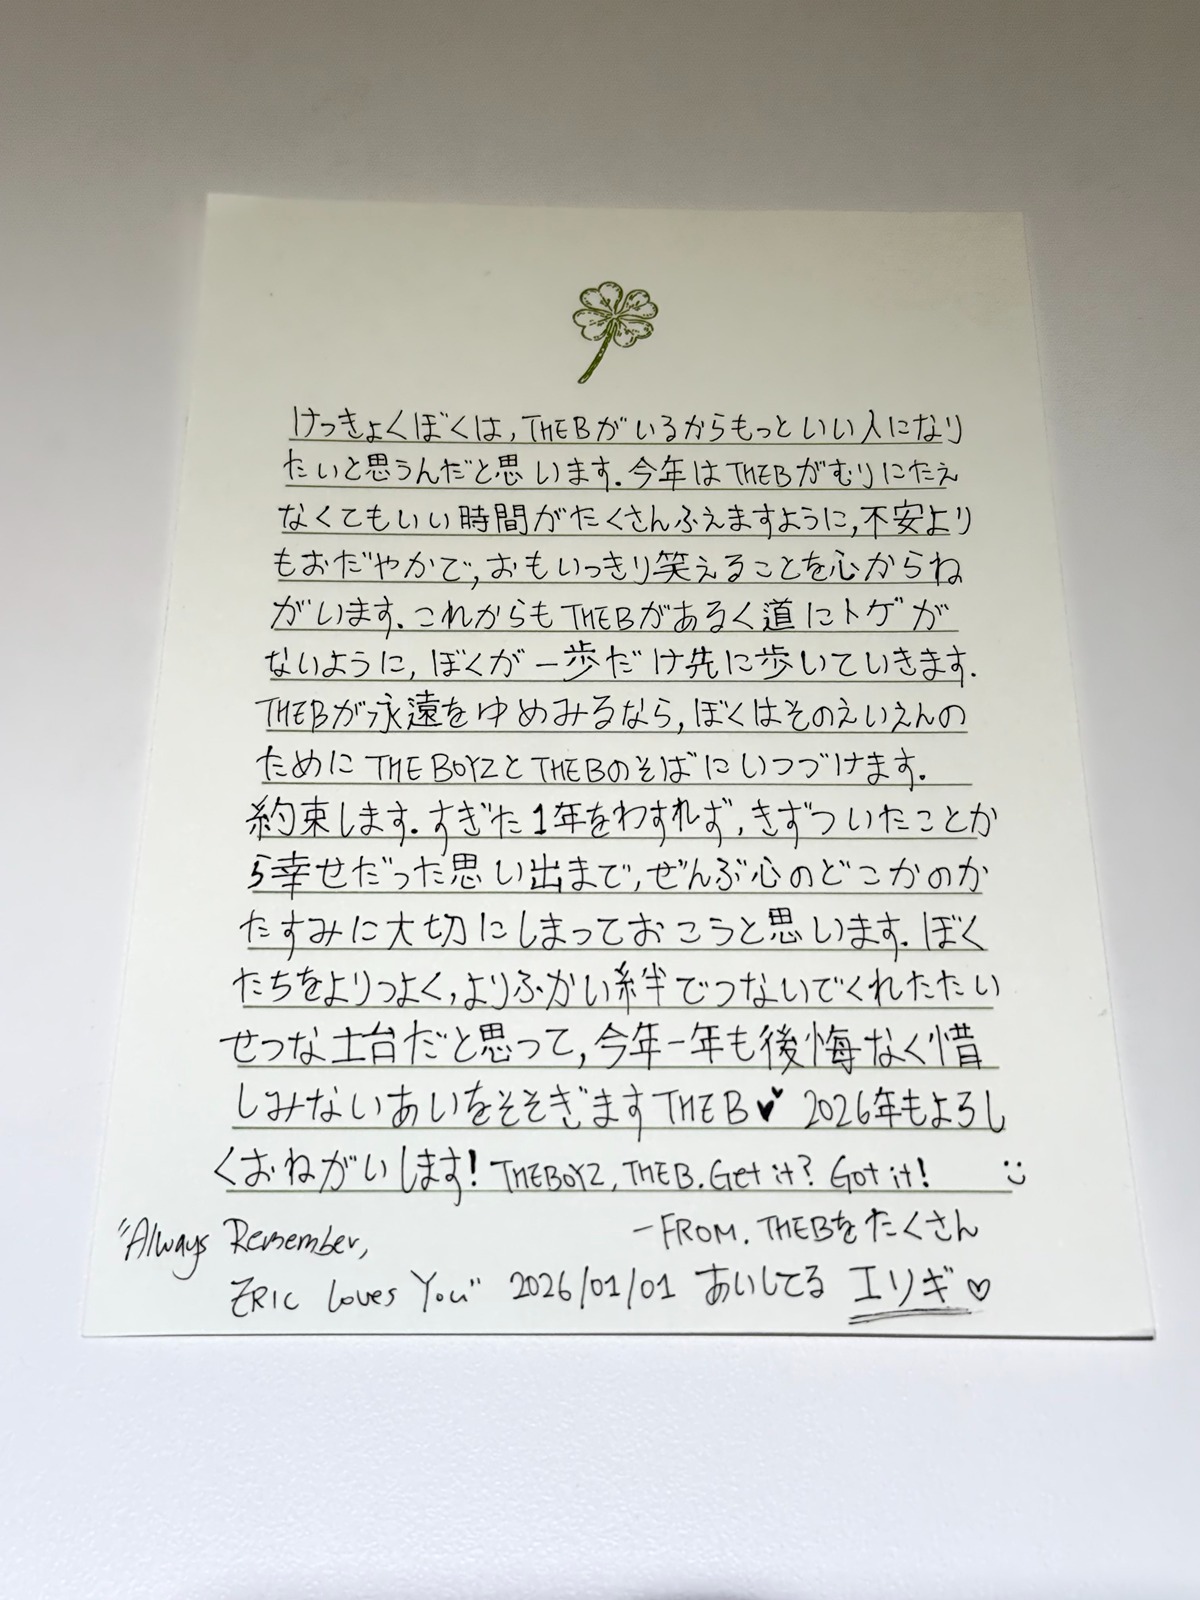 けっきょくぼくは, THEBがいるからもっといい人になり
たいと思うんだと思います. 今年はTHEBがむりにたえ
なくてもいい時間がたくさんふえますように, 不安より
もおだやかで, おもいっきり笑えることを心からね
がいます. これからもTHEBがあるく道にトゲが
ないように, ぼくが一歩だけ先に歩いていきます.
THEBが永遠をゆめみるなら, ぼくはそのえいえんの
ためにTHEBOYZとTHEBのそばにいつづけます.
約束します. すぎた1年をわすれず, きずついたことか
ら幸せだった思い出まで, ぜんぶ心のどこかのか
たすみに大切にしまっておこうと思います. ぼく
たちをよりつよく, よりふかい絆でつないでくれたたい
せつな土台だと思って, 今年一年も後悔なく惜
しみないあいをそそぎますTHEB♥ 2026年もよろし
くおねがいします! THEBOYZ, THEB. Get it? Got it! :)
-FROM. THEBをたくさん
"Always Remember,
ERIC Loves You" 2026/01/01 あいしてる エリギ♡